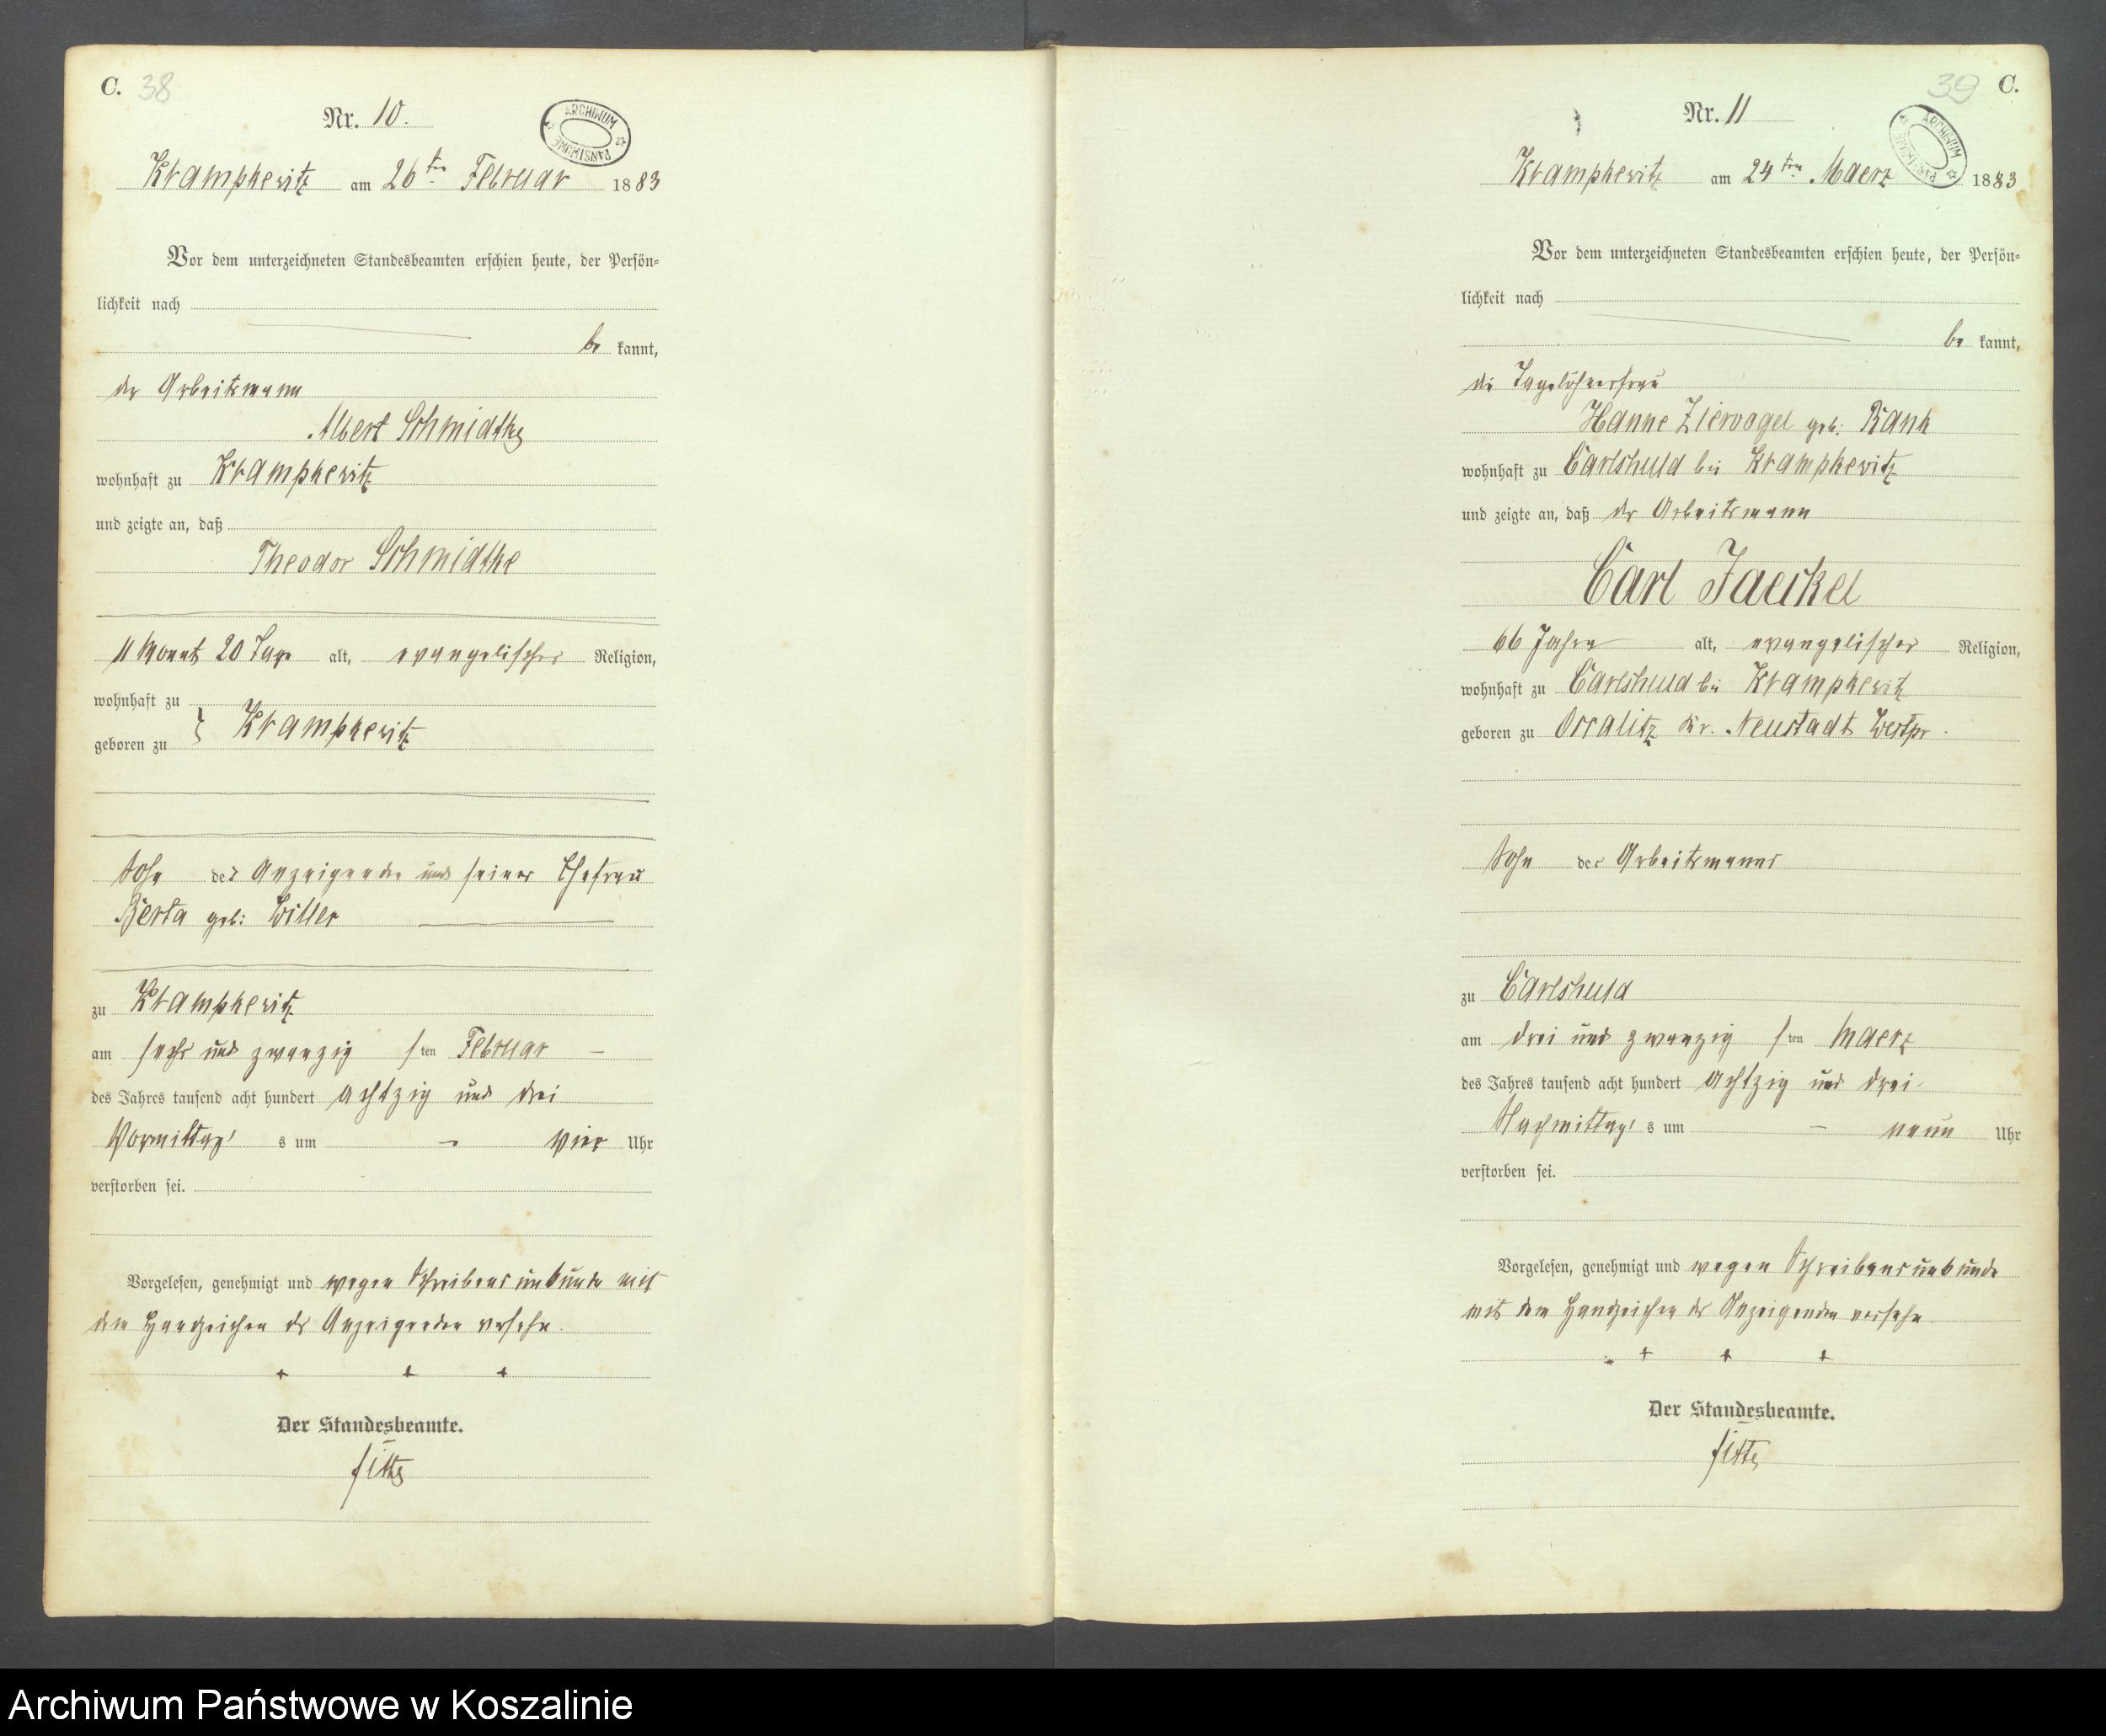 C. 38
Nr. 10.
ARCHIWUM PAŃSTWOWE
Krampkewitz am 26ten Februar 1883
Vor dem unterzeichneten Standesbeamten erschien heute, der Persön=
lichkeit nach
be kannt,
der Arbeitsmann
Albert Schmidtke
wohnhaft zu Krampkewitz
und zeigte an, daß
Theodor Schmidtke
11 Monat 20 Tage alt, evangelischer Religion,
wohnhaft zu
geboren zu } Krampkewitz
Sohn des Anzeigenden und seiner Ehefrau
Berta geb: Witter
zu Krampkewitz
am sechs und zwanzig sten Februar –
des Jahres tausend acht hundert achtzig und drei
Vormittag's um – vier Uhr
verstorben sei.
Vorgelesen, genehmigt und wegen Schreibensunkunde mit
dem Handzeichen des Anzeigenden versehen.
+ + +
Der Standesbeamte.
C. 39
Nr. 11
ARCHIWUM PAŃSTWOWE
Krampkewitz am 24ten Maerz 1883
Vor dem unterzeichneten Standesbeamten erschien heute, der Persön=
lichkeit nach
be kannt,
die Tagelöhnerfrau
Hanne Ziervogel geb. Rank
wohnhaft zu Carlshuld bei Krampkewitz
und zeigte an, daß der Arbeitsmann
Carl Jaeckel
66 Jahre alt, evangelischer Religion,
wohnhaft zu Carlshuld bei Krampkewitz
geboren zu Ossalitz Kr. Neustadt Westpr.
Sohn des Arbeitsmannes
zu Carlshuld
am drei und zwanzig sten Maerz
des Jahres tausend acht hundert achtzig und drei
Nachmittag's um – neun Uhr
verstorben sei.
Vorgelesen, genehmigt und wegen Schreibensunkunde
mit dem Handzeichen der Anzeigenden versehen.
+ + +
Der Standesbeamte.
Archiwum Państwowe w Koszalinie